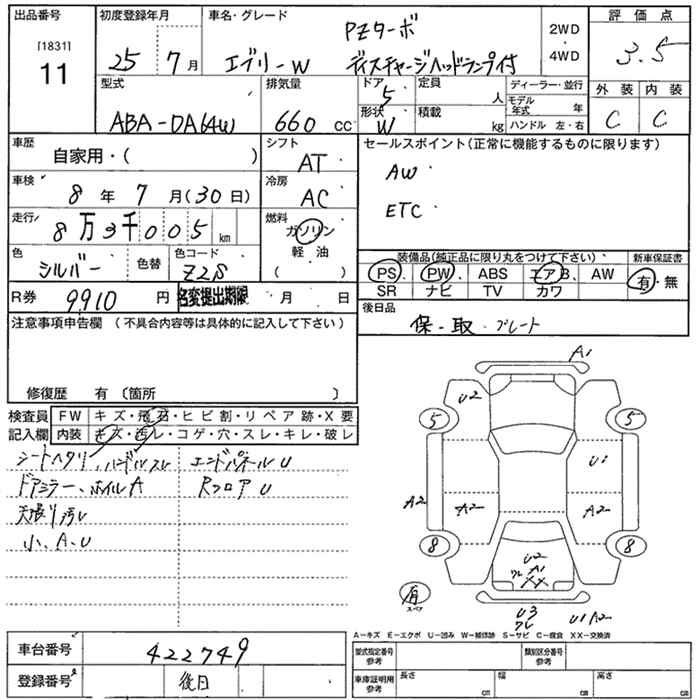 出品番号 初度登録年月 車名・グレード 2WD 評価点
[1831] PZターボ
11 25 7月 エブリーW ディスチャージヘッドランプ付 4WD 3.5
型式 排気量 ドア 5 定員 人 ディーラー・並行 外装 内装
モデル年式 年
ABA-DA64W 660 cc 形状 W 積載 kg ハンドル 左・右 C C
車歴 自家用・( ) シフト AT セールスポイント(正常に機能するものに限ります)
車検 8年 7月(30日) 冷房 AC AW
走行 8万3千005 km 燃料 ガソリン ETC
軽油
( )
色 シルバー 色替 色コード Z2S 装備品(純正品に限り丸をつけて下さい) 新車保証書
PS PW ABS エアB AW 有・無
R券 9910円 名変提出期限 月 日 SR ナビ TV カワ
注意事項申告欄 (不具合内容等は具体的に記入して下さい) 後日品
保・取・プレート
修復歴 有 〔箇所 〕
検査員 FW キズ・飛石・ヒビ割・リペア跡・X要
記入欄 内装 キズ・汚レ・コゲ・穴・スレ・キレ・破レ
シートヘタリ、ハンドルスレ エンドパネルU
ドアミラー、ホイルA RフロアU
天張り汚レ
小、A、U
A1
U2
5 5
U1
A2 A2 A2 A2
8 8
U2
A1
XX
有
スペア
U3 U1 A2
A-キズ E-エクボ U-凹み W-補修跡 S-サビ C-腐食 XX-交換済
車台番号 422749 型式指定番号 参考 類別区分番号 参考
登録番号 後日 車庫証明用 参考 長さ cm 幅 cm 高さ cm